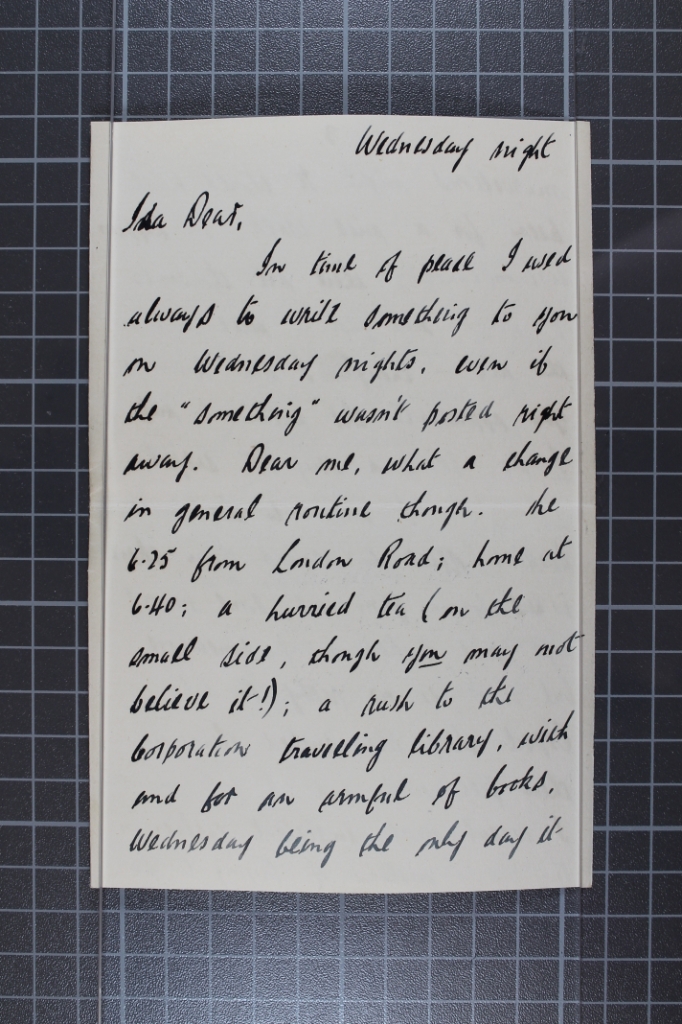 Wednesday night
Ida Dear,
In time of peace I used
always to write something to you
on Wednesday nights, even if
the "something" wasn't posted right
away. Dear me, what a change
in general routine though. The
6.25 from London Road; home at
6.40; a hurried tea (on the
small side, though you may not
believe it!); a rush to the
Corporation travelling library, with
and for an armful of books,
Wednesday being the only day it